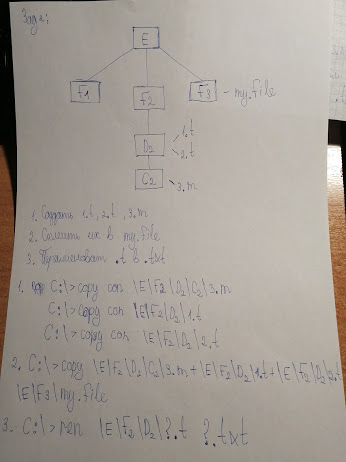 Задач:
E
F1
F2
F3 - my.file
D2
1.t
2.t
C2
3.m
1. Создать 1.t, 2.t, 3.m
2. Слить их в my.file
3. Переименоват .t в .txt
1. C:\>copy con \E\F2\D2\C2\3.m
C:\>copy con \E\F2\D2\1.t
C:\>copy con \E\F2\D2\2.t
2. C:\>copy \E\F2\D2\C2\3.m+\E\F2\D2\1.t+\E\F2\D2\2.t
\E\F3\my.file
3. C:\>ren \E\F2\D2\?.t ?.txt